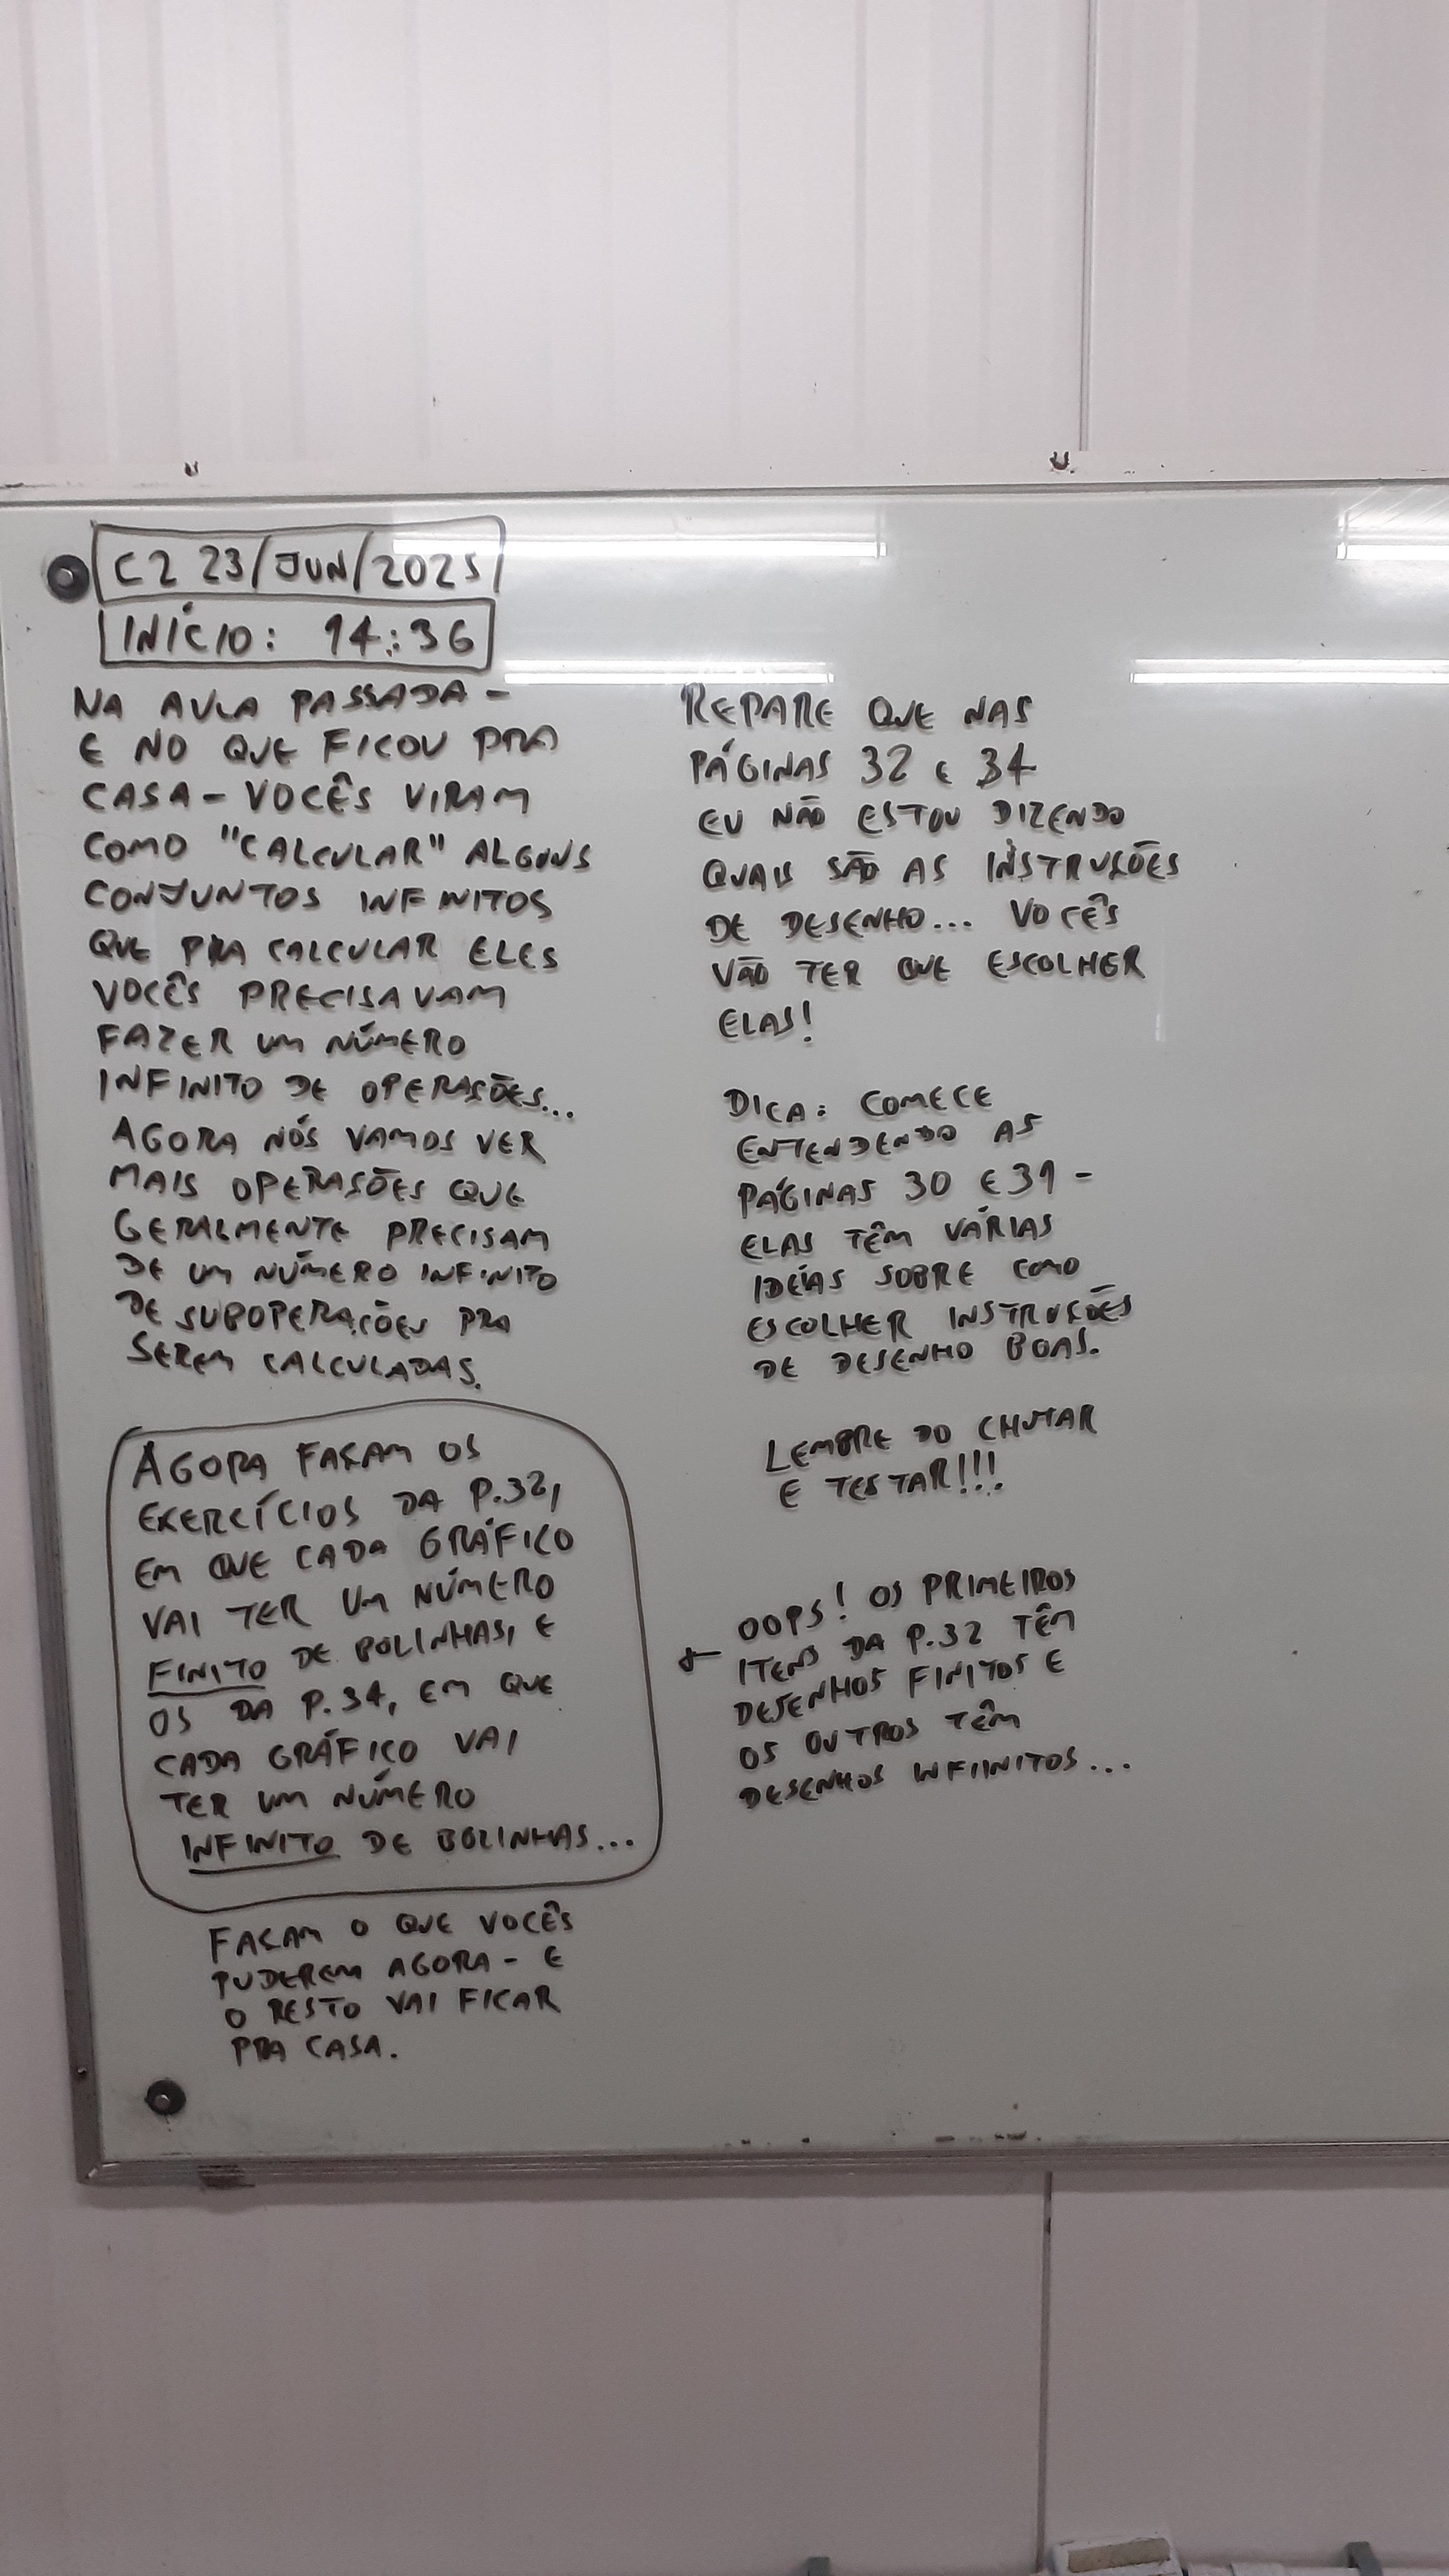 C2 23/JUN/2025
INÍCIO: 14:36
NA AULA PASSADA -
E NO QUE FICOU PRA
CASA - VOCÊS VIRAM
COMO "CALCULAR" ALGUNS
CONJUNTOS INFINITOS
QUE PRA CALCULAR ELES
VOCÊS PRECISAVAM
FAZER UM NÚMERO
INFINITO DE OPERAÇÕES...
AGORA NÓS VAMOS VER
MAIS OPERAÇÕES QUE
GERALMENTE PRECISAM
DE UM NÚMERO INFINITO
DE SUBOPERAÇÕES PRA
SEREM CALCULADAS.
AGORA FAÇAM OS
EXERCÍCIOS DA P.32,
EM QUE CADA GRÁFICO
VAI TER UM NÚMERO
FINITO DE BOLINHAS, E
OS DA P.34, EM QUE
CADA GRÁFICO VAI
TER UM NÚMERO
INFINITO DE BOLINHAS...
FAÇAM O QUE VOCÊS
PUDEREM AGORA - E
O RESTO VAI FICAR
PRA CASA.
REPARE QUE NAS
PÁGINAS 32 E 34
EU NÃO ESTOU DIZENDO
QUAIS SÃO AS INSTRUÇÕES
DE DESENHO... VOCÊS
VÃO TER QUE ESCOLHER
ELAS!
DICA: COMECE
ENTENDENDO AS
PÁGINAS 30 E 31 -
ELAS TÊM VÁRIAS
IDÉIAS SOBRE COMO
ESCOLHER INSTRUÇÕES
DE DESENHO BOAS.
LEMBRE DO CHUTAR
E TESTAR!!!
OOPS! OS PRIMEIROS
ITENS DA P.32 TÊM
DESENHOS FINITOS E
OS OUTROS TÊM
DESENHOS INFIINITOS...